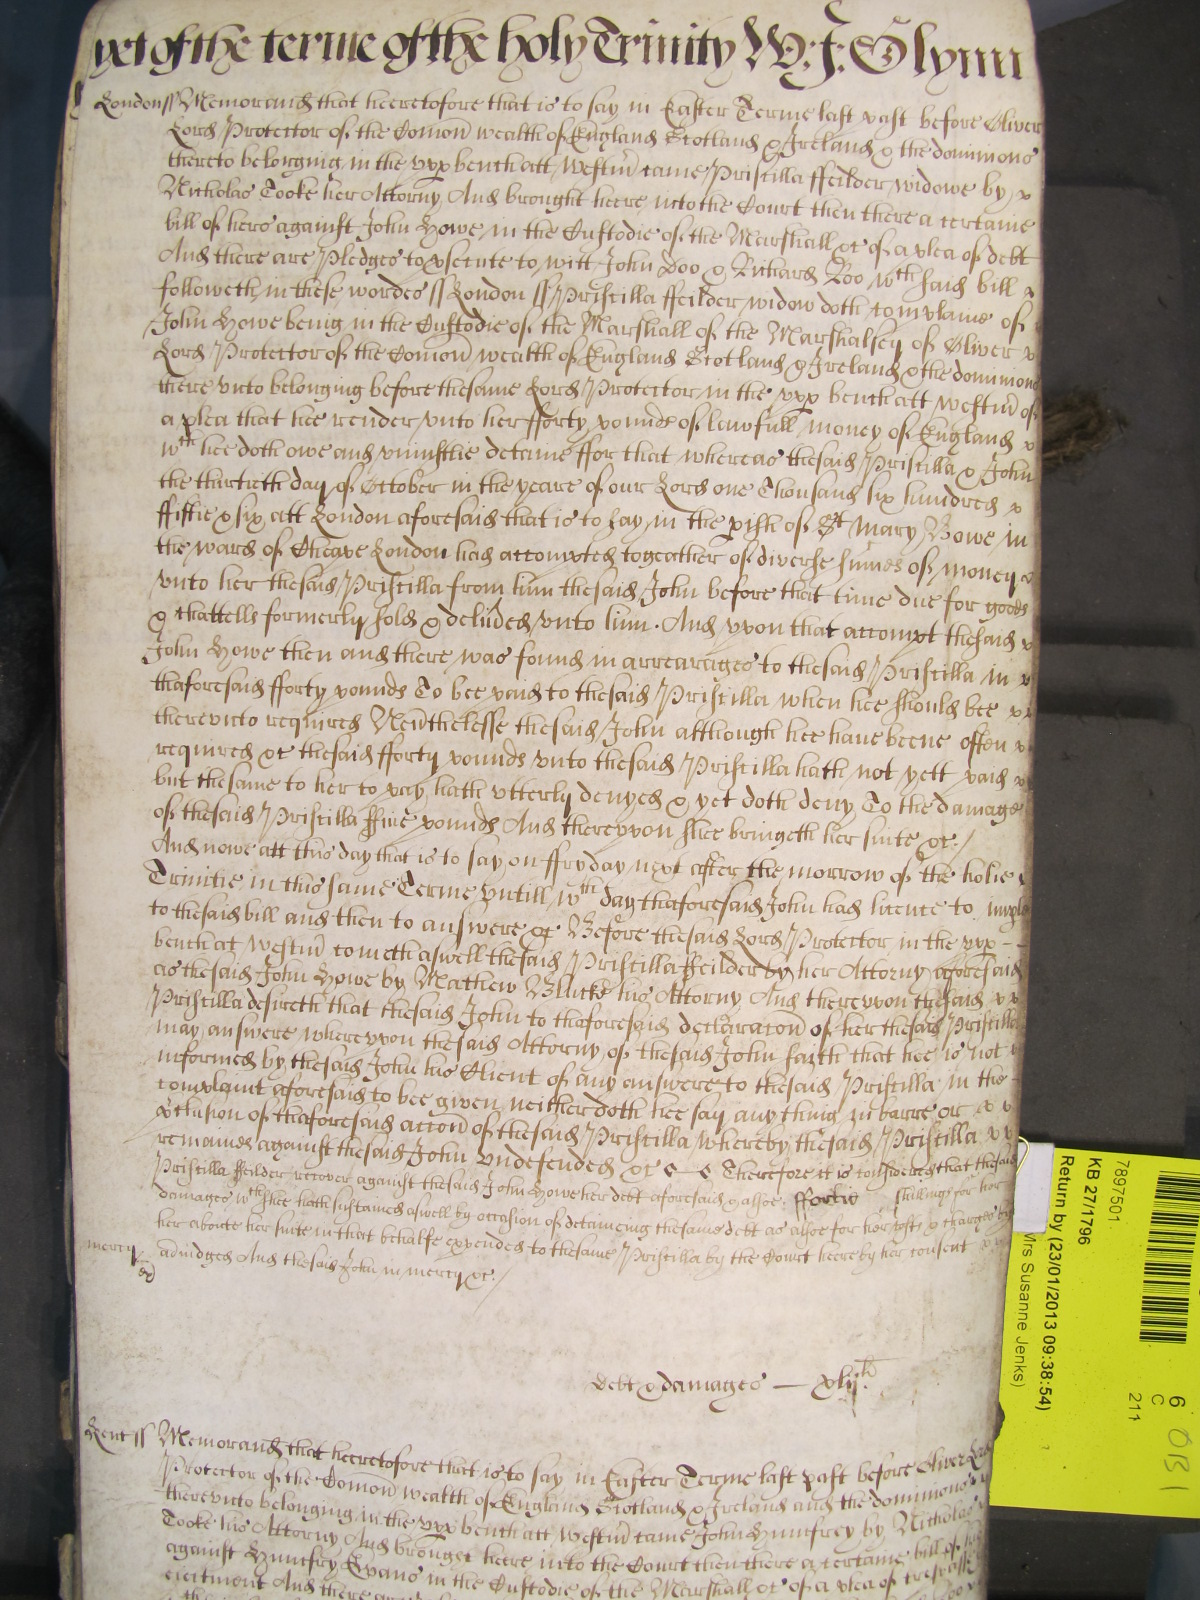 yet of the terme of the holy Trinity W: J: Glynn
London ss Memorand that heeretofore that is to say in Easter Terme last past before Oliver
Lord Protector of the Comon wealth of England Scotland & Ireland & the dominions
thereto belonging in the vpp bench att Westm came Priscilla ffeilder widowe by
Nicholas Cooke her Attorny And brought heere into the Court then there a certaine
bill of hers against John Howe in the Custodie of the Marshall &c of a plea of debt
And there are Pledges to psecute to witt John Doo & Richard Roo wch said bill
followeth in these wordes ss London ss Priscilla ffeilder widow doth complaine of
John Howe being in the Custodie of the Marshall of the Marshalsey of Oliver
Lord Protector of the Comon wealth of England Scotland & Ireland & the dominions
there vnto belonging before the same Lord Protector in the vpp bench att Westm of
a plea that hee render vnto her fforty pounds of lawfull money of England
wch hee doth owe and viniustlie detaine ffor that whereas the said Priscilla & John
the thirtieth day of October in the yeare of our Lord one Thousand six hundred
ffiftie & six att London aforesaid that is to say in the pish of St Mary Bowe in
the ward of Cheape London had accompted togeather of diverse sumes of money
vnto her the said Priscilla from him the said John before that time due for goods
& chattells formerly sold & deliued vnto him. And vpon that accompt the said
John Howe then and there was found in arrearages to the said Priscilla in
thaforesaid fforty pounds To bee paid to the said Priscilla when hee should bee
therevnto required Neuthelesse the said John although hee haue beene often
required &c the said fforty pounds vnto the said Priscilla hath not yett paid
but the same to her to pay hath vtterly denyed & yet doth deny To the damage
of the said Priscilla ffive pounds And therevpon shee bringeth her suite &c.
And nowe att this day that is to say on ffryday next after the morrow of the holie
Trinitie in this same Terme vntill wch day thaforesaid John had licence to imple
to the said bill and then to answere &c Before the said Lord Protector in the vpp
bench at Westm cometh aswell the said Priscilla ffeilder by her Attorny aforesaid
as the said John Howe by Mathew Blucke his Attorny And therevpon the said
Priscilla desireth that the said John to thaforesaid declaracon of her the said Priscilla
may answere wherevpon the said Attorny of the said John saith that hee is not
informed by the said John his Client of any answere to the said Priscilla in the
complaint aforesaid to bee given neither doth hee say any thing in barre or
pclusion of thaforesaid accon of the said Priscilla whereby the said Priscilla
remaines against the said John vndefended &c Therefore it is considered that the said
Priscilla ffeilder recover against the said John Howe her debt aforesaid & alsoe fortie shillings for her
damages wch shee hath sustained aswell by occasion of detaineing the same debt as alsoe for her costs & charges by
her aboute her suite in that behalfe expended to the same Priscilla by the Court heere by her consent
mercy adiudged And the said John in mercy &c.
Debt & damages — xlij li
Kent ss Memorand that heeretofore that is to say in Easter Terme last past before Oliver Lord
Protector of the Comon wealth of England Scotland & Ireland and the dominions
therevnto belonging in the vpp bench att Westm came John Humfrey by Nicholas
Cooke his Attorny And brought heere into the Court then there a certaine bill of his
against Humfry Evans in the Custodie of the Marshall &c of a plea of trespasse
eiectment And there are
7897501
KB 27/1796
Return by (23/01/2013 09:38:54)
Mrs Susanne Jenks)
6
C
211